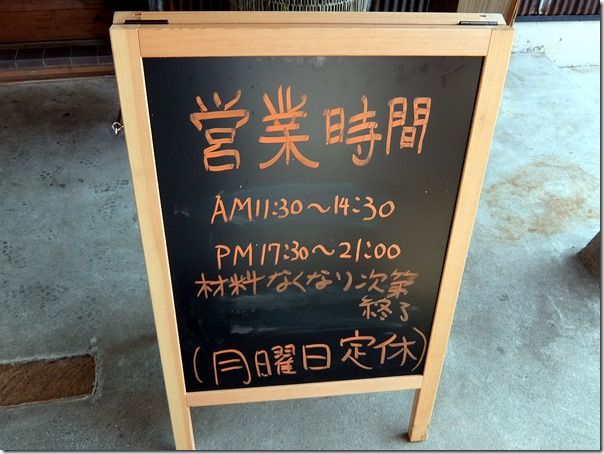 営業時間
AM11:30〜14:30
PM17:30〜21:00
材料なくなり次第
終了
(月曜日定休)